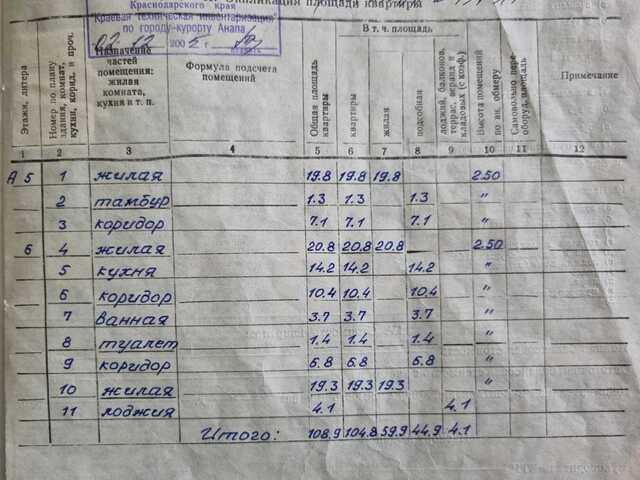 Краснодарского края
"Краевая техническая инвентаризация"
по городу-курорту Анапа
площади квартиры
Этажи, литера
Номер по плану здания, комнат, кухни, корид. и проч.
Назначение частей помещения: жилая комната, кухня и т. п.
Формула подсчета помещений
Общая площадь квартиры
В т. ч. площадь
квартиры
жилая
подсобная
лоджий, балконов, террас, веранд и кладовых (с коэф.)
Высота помещений по вн. обмеру
Самовольно пере оборуд. площадь
Примечание
1 2 3 4 5 6 7 8 9 10 11 12
А 5 1 жилая 19.8 19.8 19.8 2.50
2 тамбур 1.3 1.3 1.3 "
3 коридор 7.1 7.1 7.1 "
6 4 жилая 20.8 20.8 20.8 2.50
5 кухня 14.2 14.2 14.2 "
6 коридор 10.4 10.4 10.4 "
7 ванная 3.7 3.7 3.7 "
8 туалет 1.4 1.4 1.4 "
9 коридор 6.8 6.8 6.8 "
10 жилая 19.3 19.3 19.3 "
11 лоджия 4.1 4.1
Итого: 108.9 104.8 59.9 44.9 4.1